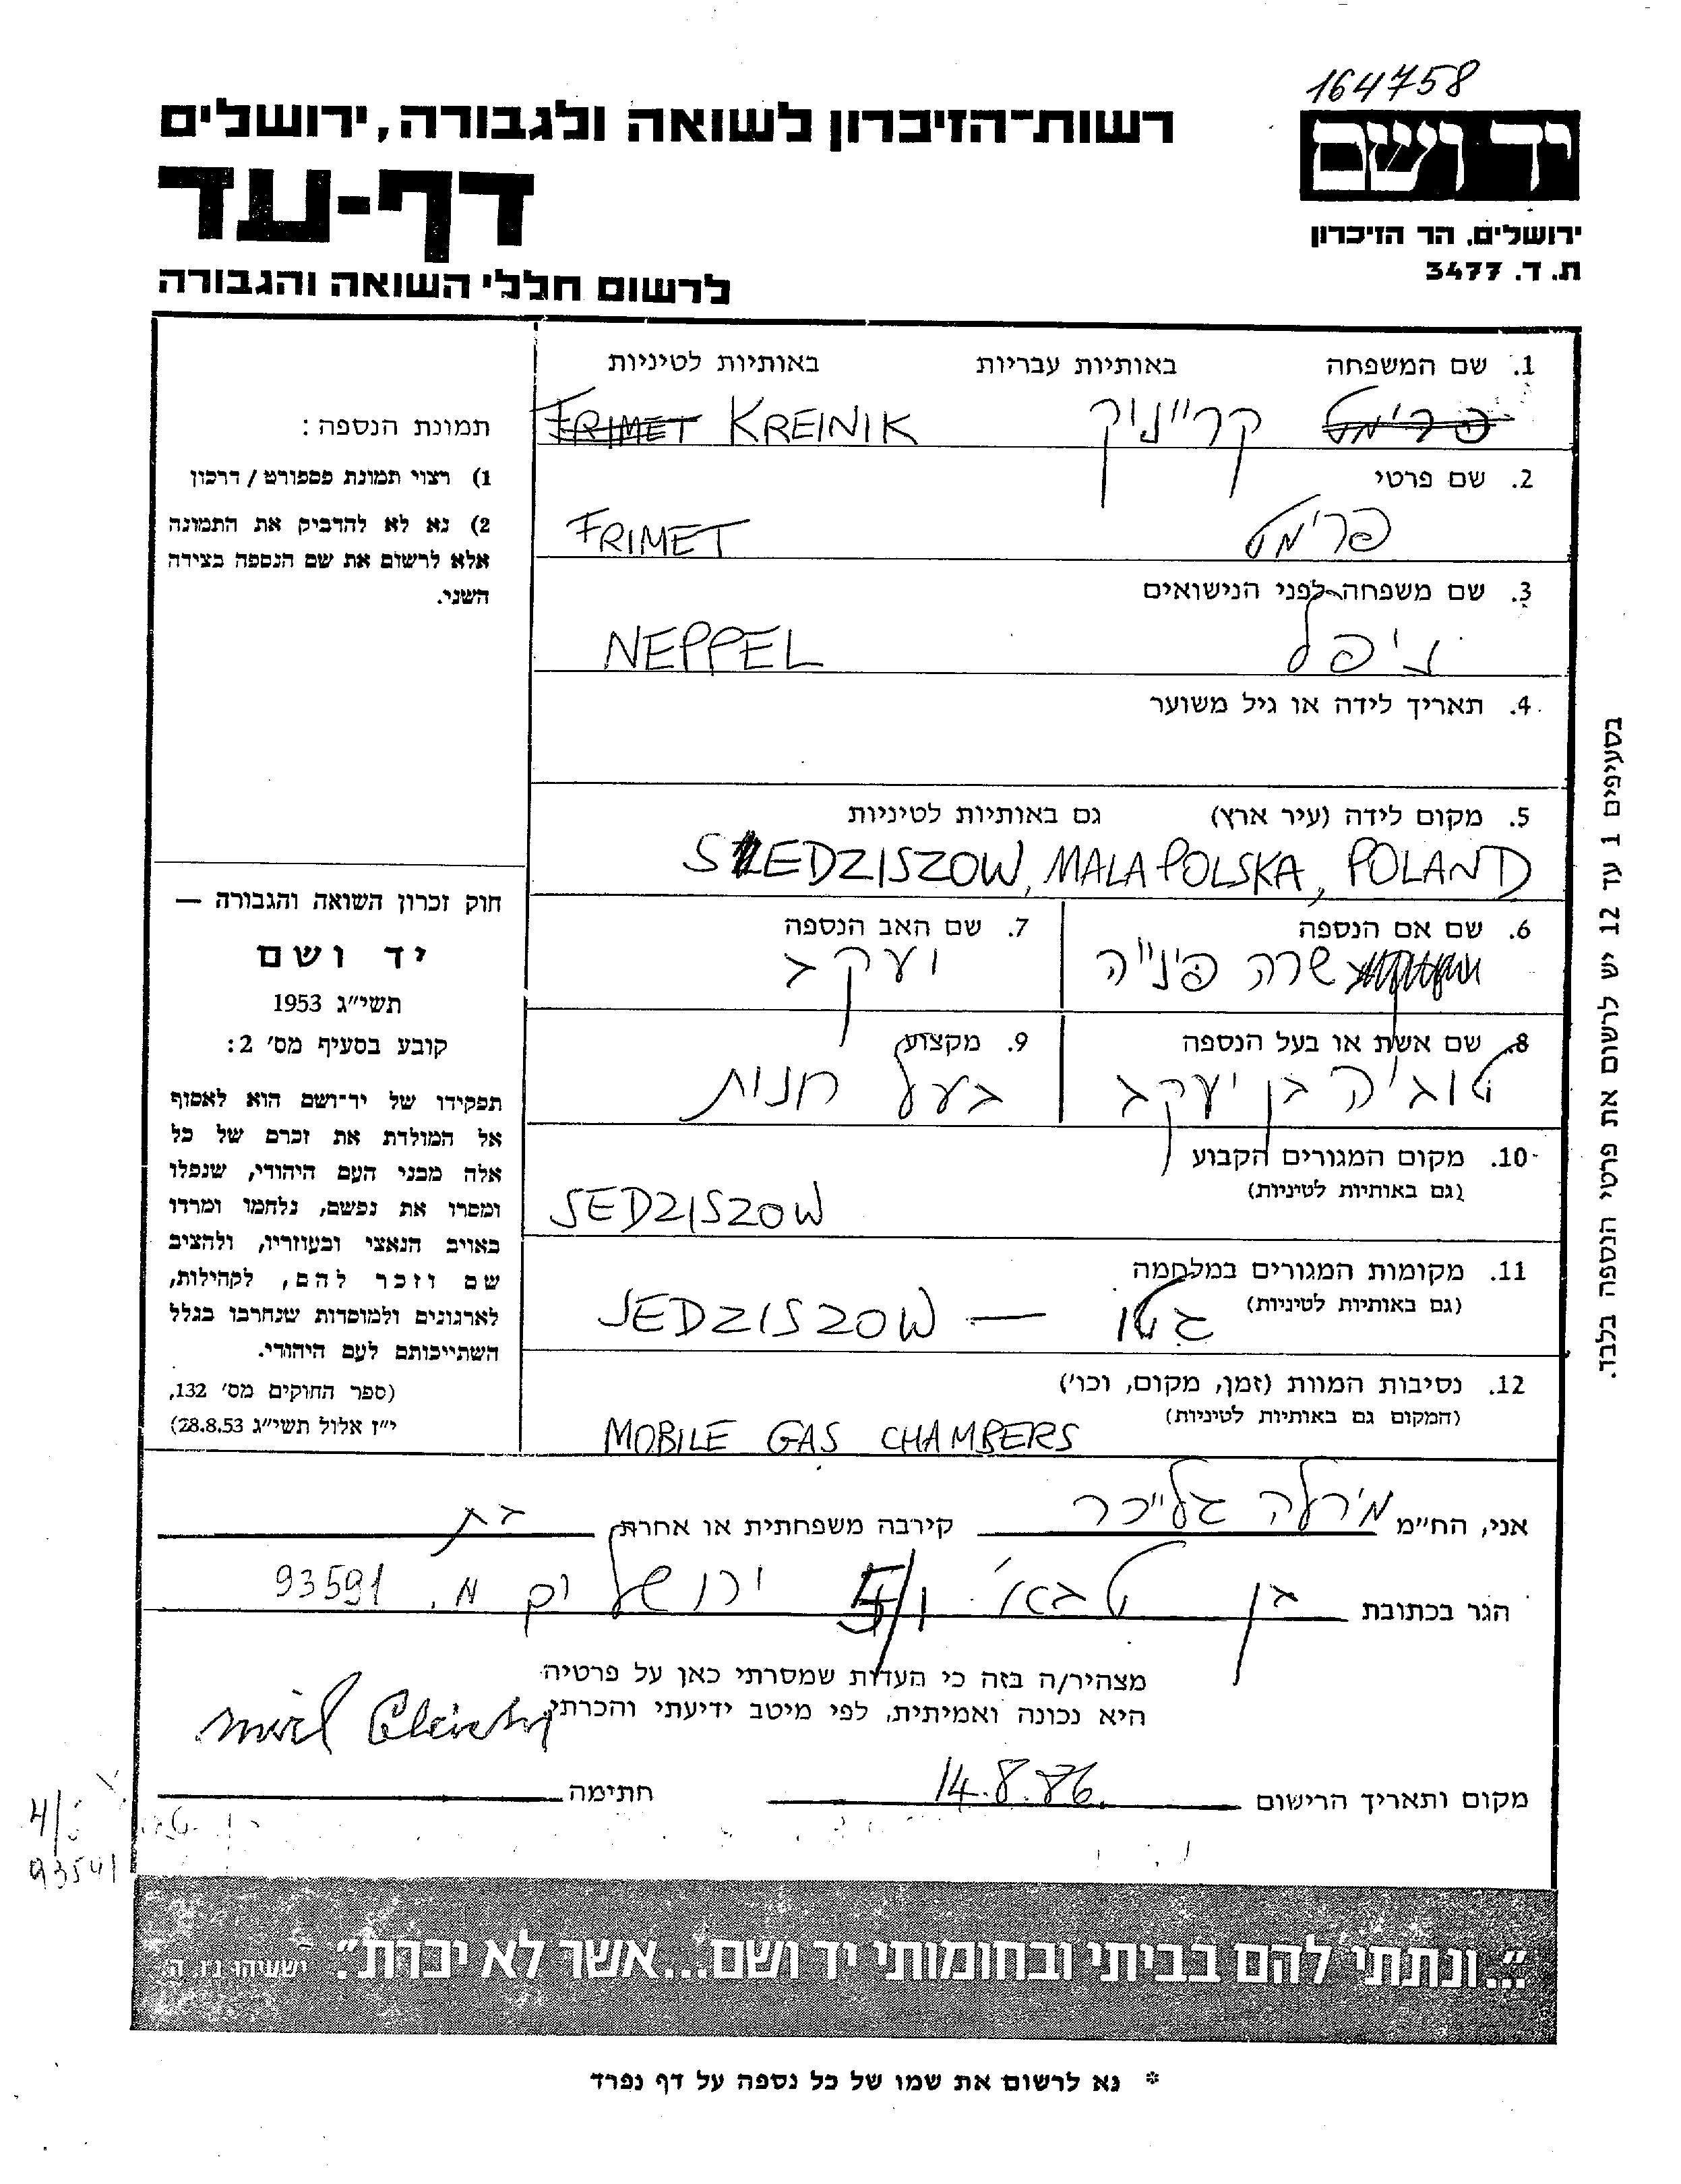 164758
יד ושם
רשות־הזיכרון לשואה ולגבורה, ירושלים
דף-עד
לרשום חללי השואה והגבורה
ירושלים, הר הזיכרון
ת. ד. 3477
1. שם המשפחה באותיות עבריות באותיות לטיניות
פרימט קרייניק FRIMET KREINIK
2. שם פרטי
פרימט FRIMET
3. שם משפחה לפני הנישואים
ניפל NEPPEL
4. תאריך לידה או גיל משוער
5. מקום לידה (עיר ארץ) גם באותיות לטיניות
SEDZISZOW, MALAPOLSKA, POLAND
6. שם אם הנספה
שרה פינייה
7. שם האב הנספה
יעקב
8. שם אשת או בעל הנספה
טוביה בן יעקב
9. מקצוע
בעל חנות
10. מקום המגורים הקבוע
(גם באותיות לטיניות)
SEDZISZOW
11. מקומות המגורים במלחמה
(גם באותיות לטיניות)
גטו — SEDZISZOW
12. נסיבות המוות (זמן, מקום, וכו')
(המקום גם באותיות לטיניות)
MOBILE GAS CHAMBERS
תמונת הנספה:
1) רצוי תמונת פספורט / דרכון
2) נא לא להדביק את התמונה
אלא לרשום את שם הנספה בצידה
השני.
חוק זכרון השואה והגבורה —
יד ושם
תשי״ג 1953
קובע בסעיף מס' 2:
תפקידו של יד־ושם הוא לאסוף
אל המולדת את זכרם של כל
אלה מבני העם היהודי, שנפלו
ומסרו את נפשם, נלחמו ומרדו
באויב הנאצי ובעוזריו, ולהציב
שם וזכר להם, לקהילות,
לארגונים ולמוסדות שנחרבו בגלל
השתייכותם לעם היהודי.
(ספר החוקים מס' 132,
י״ז אלול תשי״ג 28.8.53)
בסעיפים 1 עד 12 יש לרשום את פרטי הנספה בלבד.
אני, הח״מ מירלה גלייכר קירבה משפחתית או אחרת בת
הגר בכתובת בן טבאי 5/1 ירושלים 93591
מצהיר/ה בזה כי העדות שמסרתי כאן על פרטיה
היא נכונה ואמיתית, לפי מיטב ידיעתי והכרתי.
Mirl Gleicher
מקום ותאריך הרישום 14.8.86 חתימה
"...ונתתי להם בביתי ובחומותי יד ושם...אשר לא יכרת". ישעיהו נו, ה
* נא לרשום את שמו של כל נספה על דף נפרד